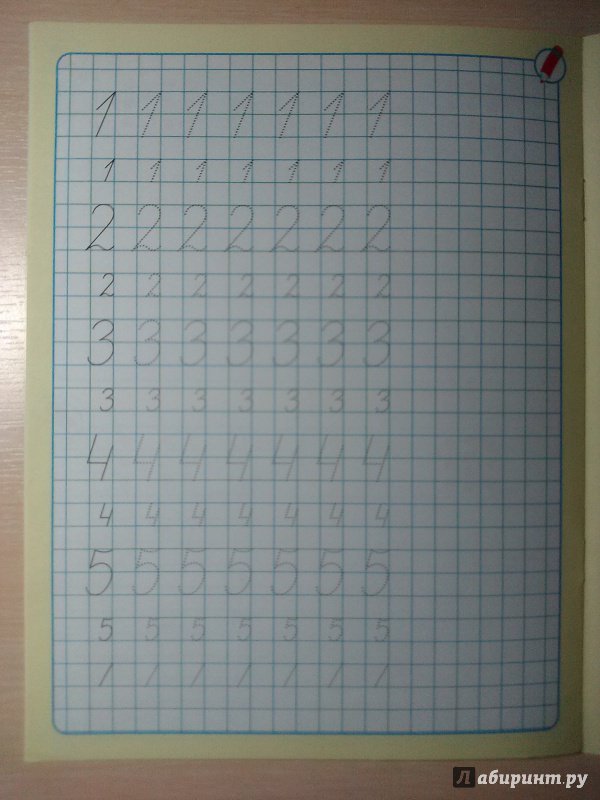 1 1 1 1 1 1 1
1 1 1 1 1 1 1
2 2 2 2 2 2 2
2 2 2 2 2 2 2
3 3 3 3 3 3 3
3 3 3 3 3 3 3
4 4 4 4 4 4 4
4 4 4 4 4 4 4
5 5 5 5 5 5 5
5 5 5 5 5 5 5
/ / / / / / /
Лабиринт.ру